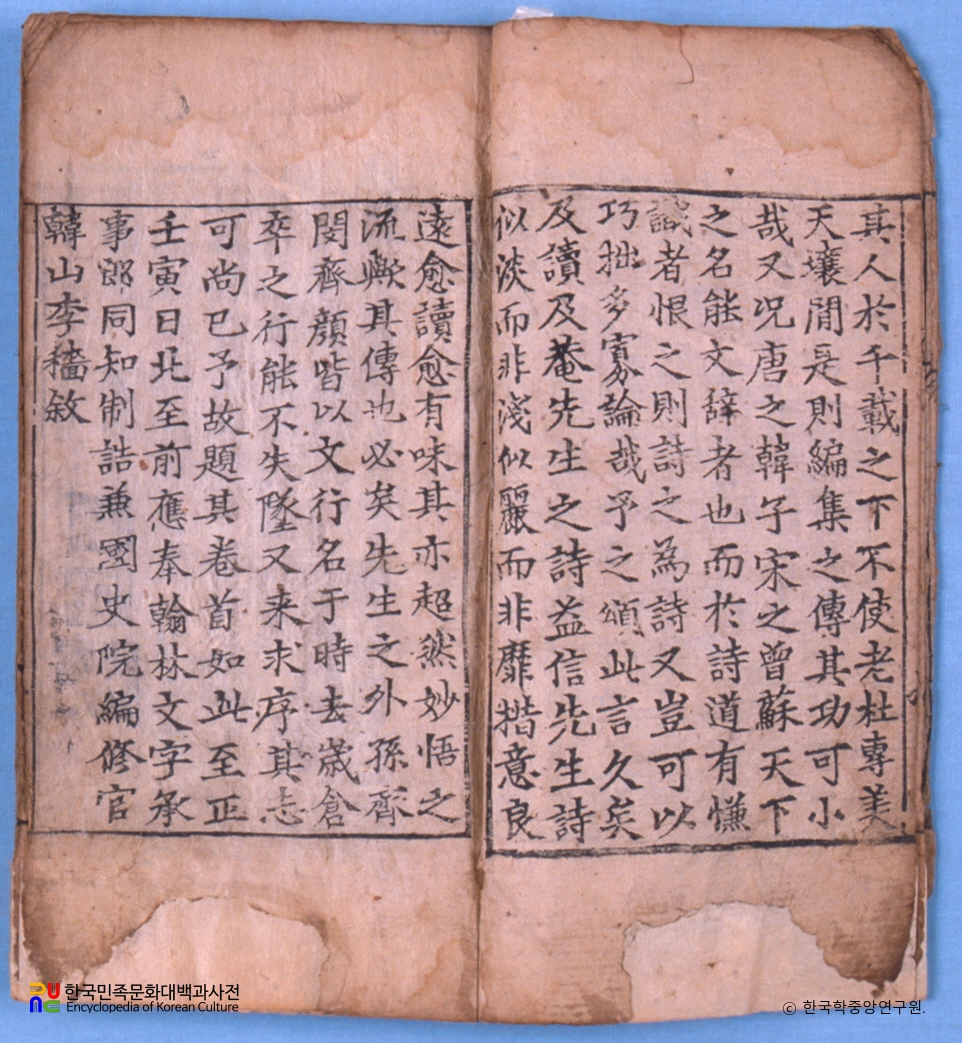 其人於千載之下不使老杜專美
天壤間是則編集之傳其功可小
哉又况唐之韓子宋之曾蘇天下
之名能文辭者也而於詩道有慊
識者恨之則詩之為詩又豈可以
巧拙多寡論哉予之頌此言久矣
及讀及菴先生之詩益信先生詩
似淡而非淺似麗而非靡措意良
遠愈讀愈有味其亦超然妙悟之
流歟其傳也必矣先生之外孫齊
閔齊顔皆以文行名于時去歲倉
卒之行能不失墜又来求序其志
可尚已予故題其卷首如此至正
壬寅日北至前應奉翰林文字承
事郎同知制誥兼國史院編修官
韓山李穡敘
한국민족문화대백과사전
Encyclopedia of Korean Culture
© 한국학중앙연구원.